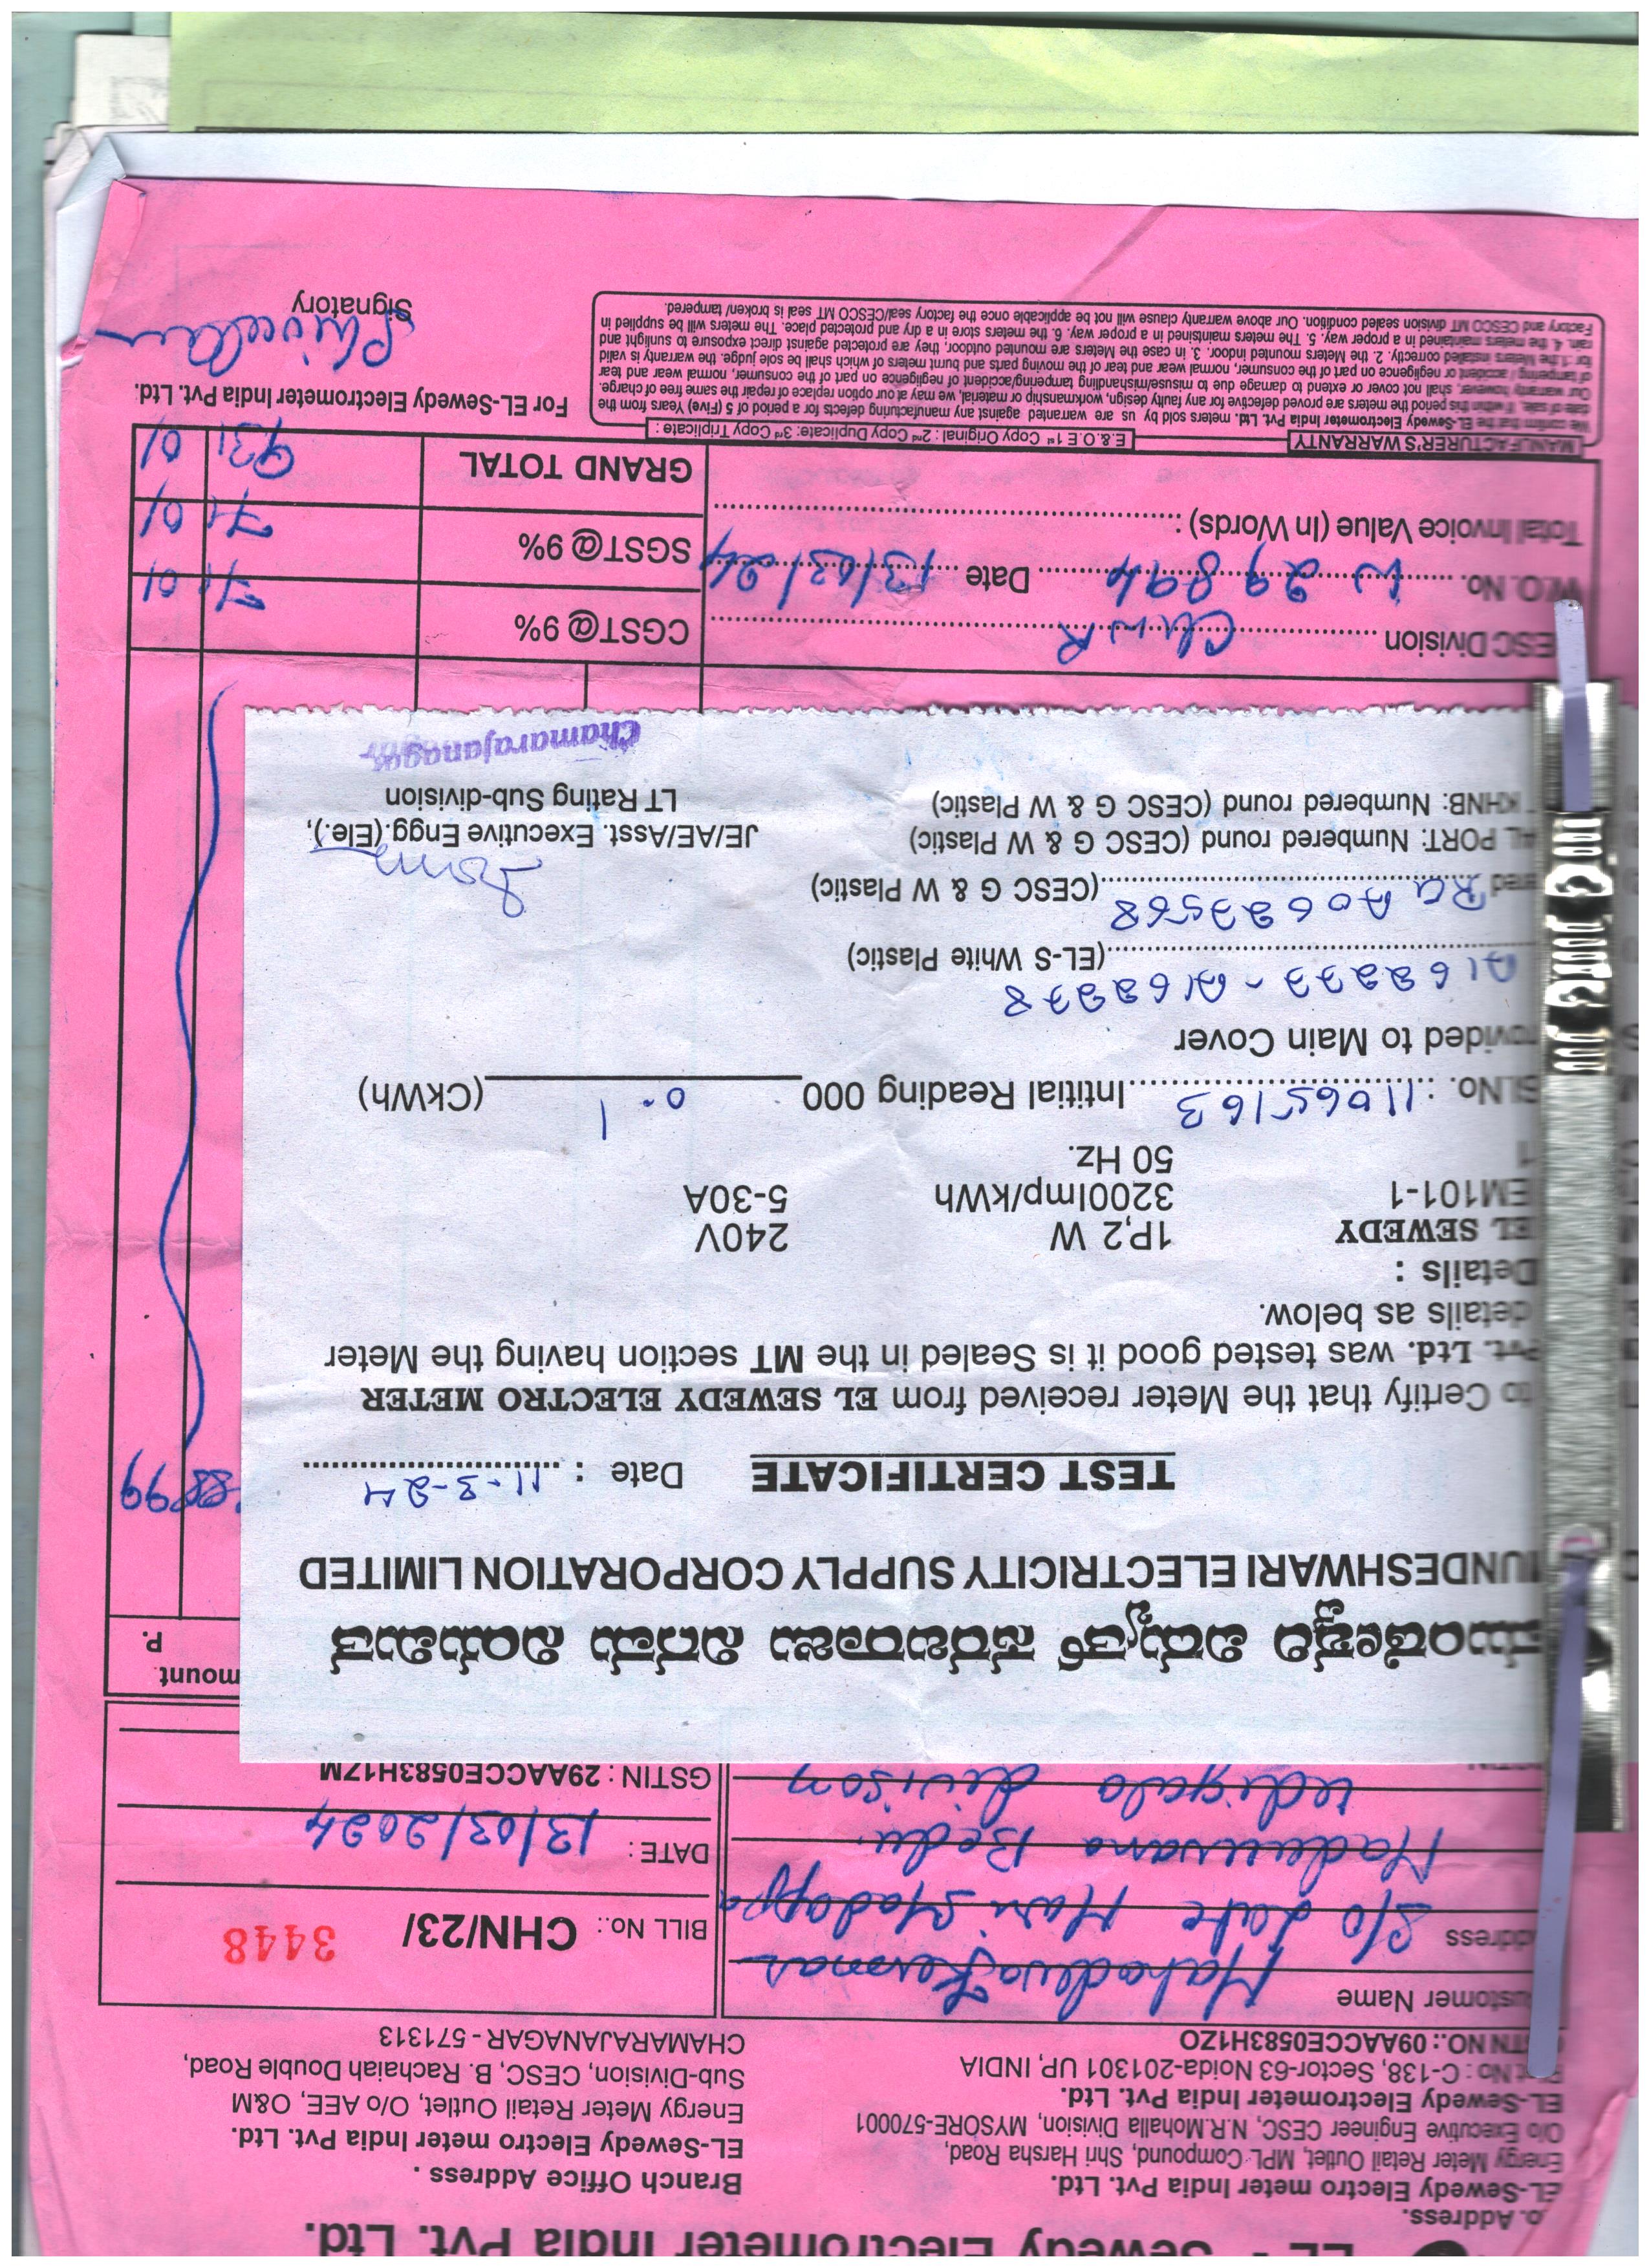 EL - Sewedy Electrometer India Pvt. Ltd.
o. Address.
EL-Sewedy Electro meter India Pvt. Ltd.
Energy Meter Retail Outlet, MPL Compound, Shri Harsha Road,
O/o Executive Engineer CESC, N.R.Mohalla Division, MYSORE-570001
EL-Sewedy Electrometer India Pvt. Ltd.
No : C-138, Sector-63 Noida-201301 UP, INDIA
TN NO.: 09AACCE0583H1ZO
Branch Office Address .
EL-Sewedy Electro meter India Pvt. Ltd.
Energy Meter Retail Outlet, O/o AEE, O&M
Sub-Division, CESC, B. Rachaiah Double Road,
CHAMARAJANAGAR - 571313
ustomer Name
ddress S/o Late
BILL No.: CHN/23/ 3448
DATE : 13/03/2024
GSTIN : 29AACCE0583H1ZM
mount
P.
ಮುಂಡೇಶ್ವರಿ ವಿದ್ಯುತ್ ಸರಬರಾಜು ನಿಗಮ ನಿಯಮಿತ
UNDESHWARI ELECTRICITY SUPPLY CORPORATION LIMITED
TEST CERTIFICATE Date : 11-3-24
99
to Certify that the Meter received from EL SEWEDY ELECTRO METER
Pvt. Ltd. was tested good it is Sealed in the MT section having the Meter
details as below.
Details :
EL SEWEDY 1P,2 W 240V
EM101-1 3200Imp/kWh 5-30A
1 50 Hz.
Sl.No. : 11065163 Intitial Reading 000 0.1 (CkWh)
ovided to Main Cover
A162277 - A162278 (EL-S White Plastic)
ered RG A0627568 (CESC G & W Plastic)
AL PORT: Numbered round (CESC G & W Plastic)
KHNB: Numbered round (CESC G & W Plastic)
JE/AE/Asst. Executive Engg.(Ele.),
LT Rating Sub-division
Chamarajanagar
ESC Division
W.O. No. W 29894 Date 13/03/24
Total Invoice Value (In Words) :
CGST@ 9% 71 01
SGST@ 9% 71 01
GRAND TOTAL 931 01
MANUFACTURER'S WARRANTY
E.&.O.E 1st Copy Original : 2nd Copy Duplicate: 3rd Copy Triplicate :
We confirm that the EL-Sewedy Electrometer India Pvt. Ltd. meters sold by us are warranted against any manufacturing defects for a period of 5 (Five) Years from the
date of sale, If within this period the meters are proved defective for any faulty design, workmanship or material, we may at our option replace of repair the same free of charge.
Our warranty however, shall not cover or extend to damage due to misuse/mishandling tampering/accident of negligence on part of the consumer, normal wear and tear
of tampering / accident or negligence on part of the consumer, normal wear and tear of the moving parts and burnt meters of which shall be sole judge. the warranty is valid
for :1.the Meters installed correctly. 2. the Meters mounted indoor. 3. in case the Meters are mounted outdoor, they are protected against direct exposure to sunlight and
rain. 4. the meters maintained in a proper way. 5. The meters maintsined in a proper way. 6. the meters store in a dry and protected place. The meters will be supplied in
Factory and CESCO MT division sealed condition. Our above warranty clause will not be applicable once the factory seal/CESCO MT seal is broken/ tampered.
For EL-Sewedy Electrometer India Pvt. Ltd.
Signatory